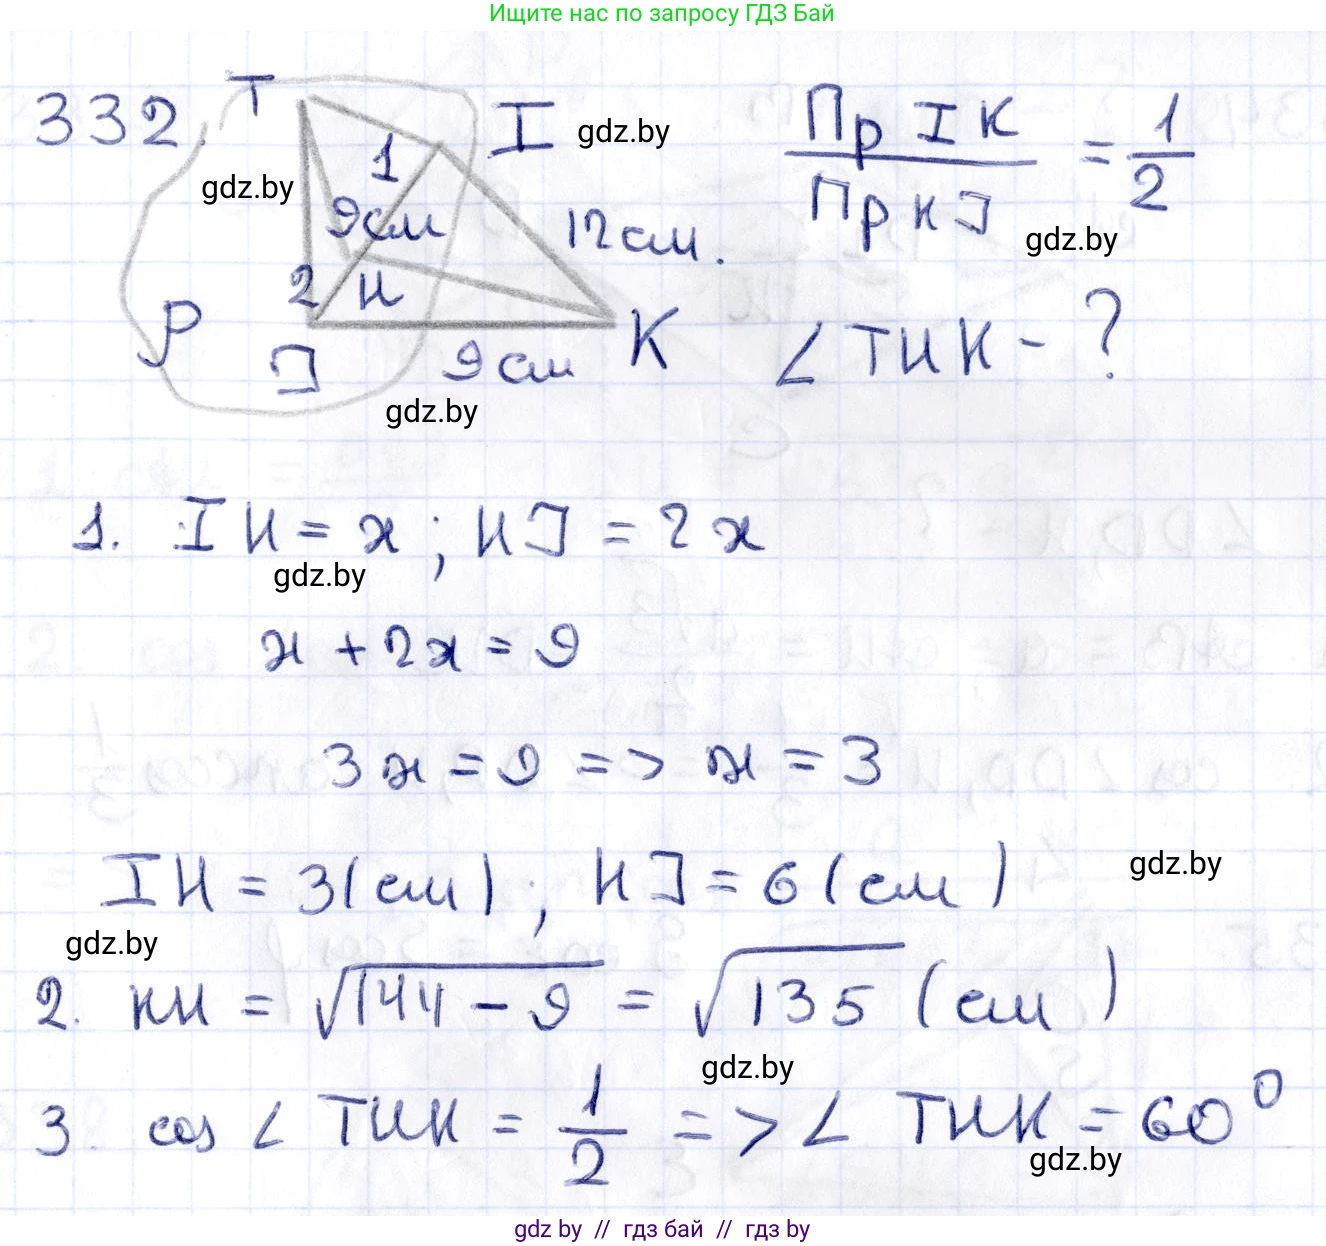 Ищите нас по запросу ГДЗ Бай
332.
T
I
gdz.by
Пр IK / Пр KJ = 1/2
1
gdz.by
9см
12см.
gdz.by
2
H
P
J
9см
K
∠ THK - ?
gdz.by
1. IH = x ; HJ = 2x
gdz.by
x + 2x = 9
3x = 9 => x = 3
IH = 3(см) ; HJ = 6(см)
gdz.by
gdz.by
2. KH = √144 - 9 = √135 (см)
gdz.by
3. cos ∠ THK = 1/2 => ∠ THK = 60°
gdz.by
gdz by // гдз бай // гдз by